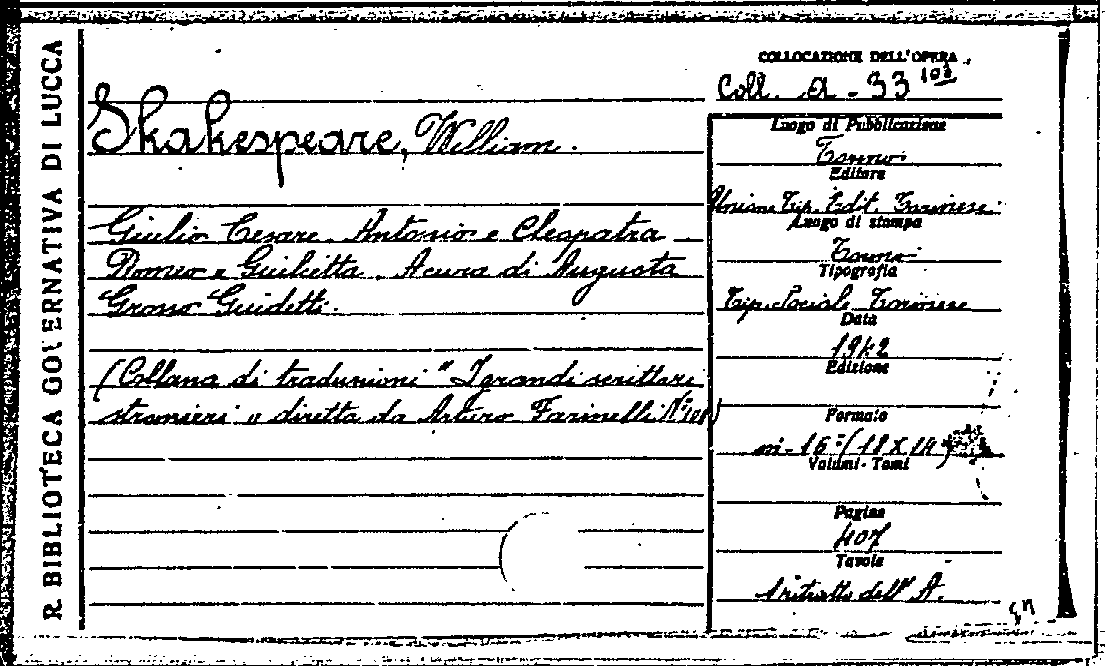 R. BIBLIOTECA GOVERNATIVA DI LUCCA
COLLOCAZIONE DELL'OPERA
Coll. A - 33 108
Shakespeare, William.
Giulio Cesare. Antonio e Cleopatra
Romeo e Giulietta. A cura di Augusta
Grosso Guidetti.
(Collana di traduzioni "I grandi scrittori
stranieri" diretta da Arturo Farinelli N. 108)
Luogo di Pubblicazione
Torino
Editore
Unione Tip. Edit. Torinese
Luogo di stampa
Torino
Tipografia
Tip. Sociale Torinese
Data
1942
Edizione
Formato
in-16° (18 X 14)
Volumi - Tomi
Pagine
407
Tavole
1 ritratto dell'A.